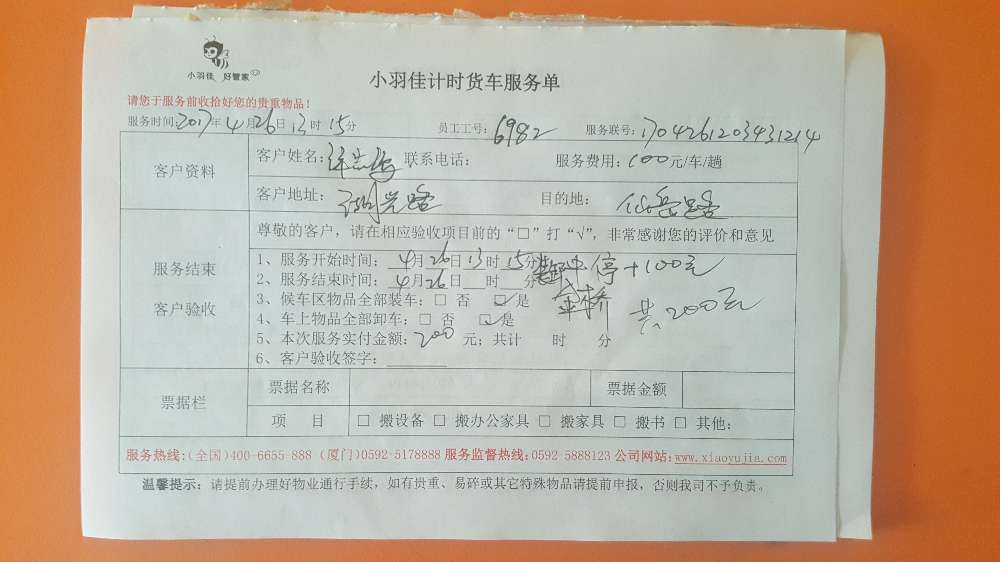 小羽佳 好管家
小羽佳计时货车服务单
请您于服务前收拾好您的贵重物品！
服务时间:2017年4月26日13时15分 员工工号:6982 服务联号:1704261203431214
客户资料
客户姓名: 联系电话: 服务费用:100元/车/趟
客户地址: 路 目的地: 仙岳路
服务结束
客户验收
尊敬的客户，请在相应验收项目前的“□”打“√”，非常感谢您的评价和意见
1、服务开始时间：4月26日13时15分 停+100元
2、服务结束时间：4月26日__时__分 金桥 共200元
3、候车区物品全部装车：□ 否 ☑是
4、车上物品全部卸车：□ 否 ☑是
5、本次服务实付金额：200元；共计 时 分
6、客户验收签字：______
票据栏
票据名称 票据金额
项 目 □ 搬设备 □ 搬办公家具 □ 搬家具 □ 搬书 □ 其他:
服务热线:(全国)400-6655-888 (厦门)0592-5178888 服务监督热线:0592-5888123 公司网站:www.xiaoyujia.com
温馨提示：请提前办理好物业通行手续，如有贵重、易碎或其它特殊物品请提前申报，否则我司不予负责。